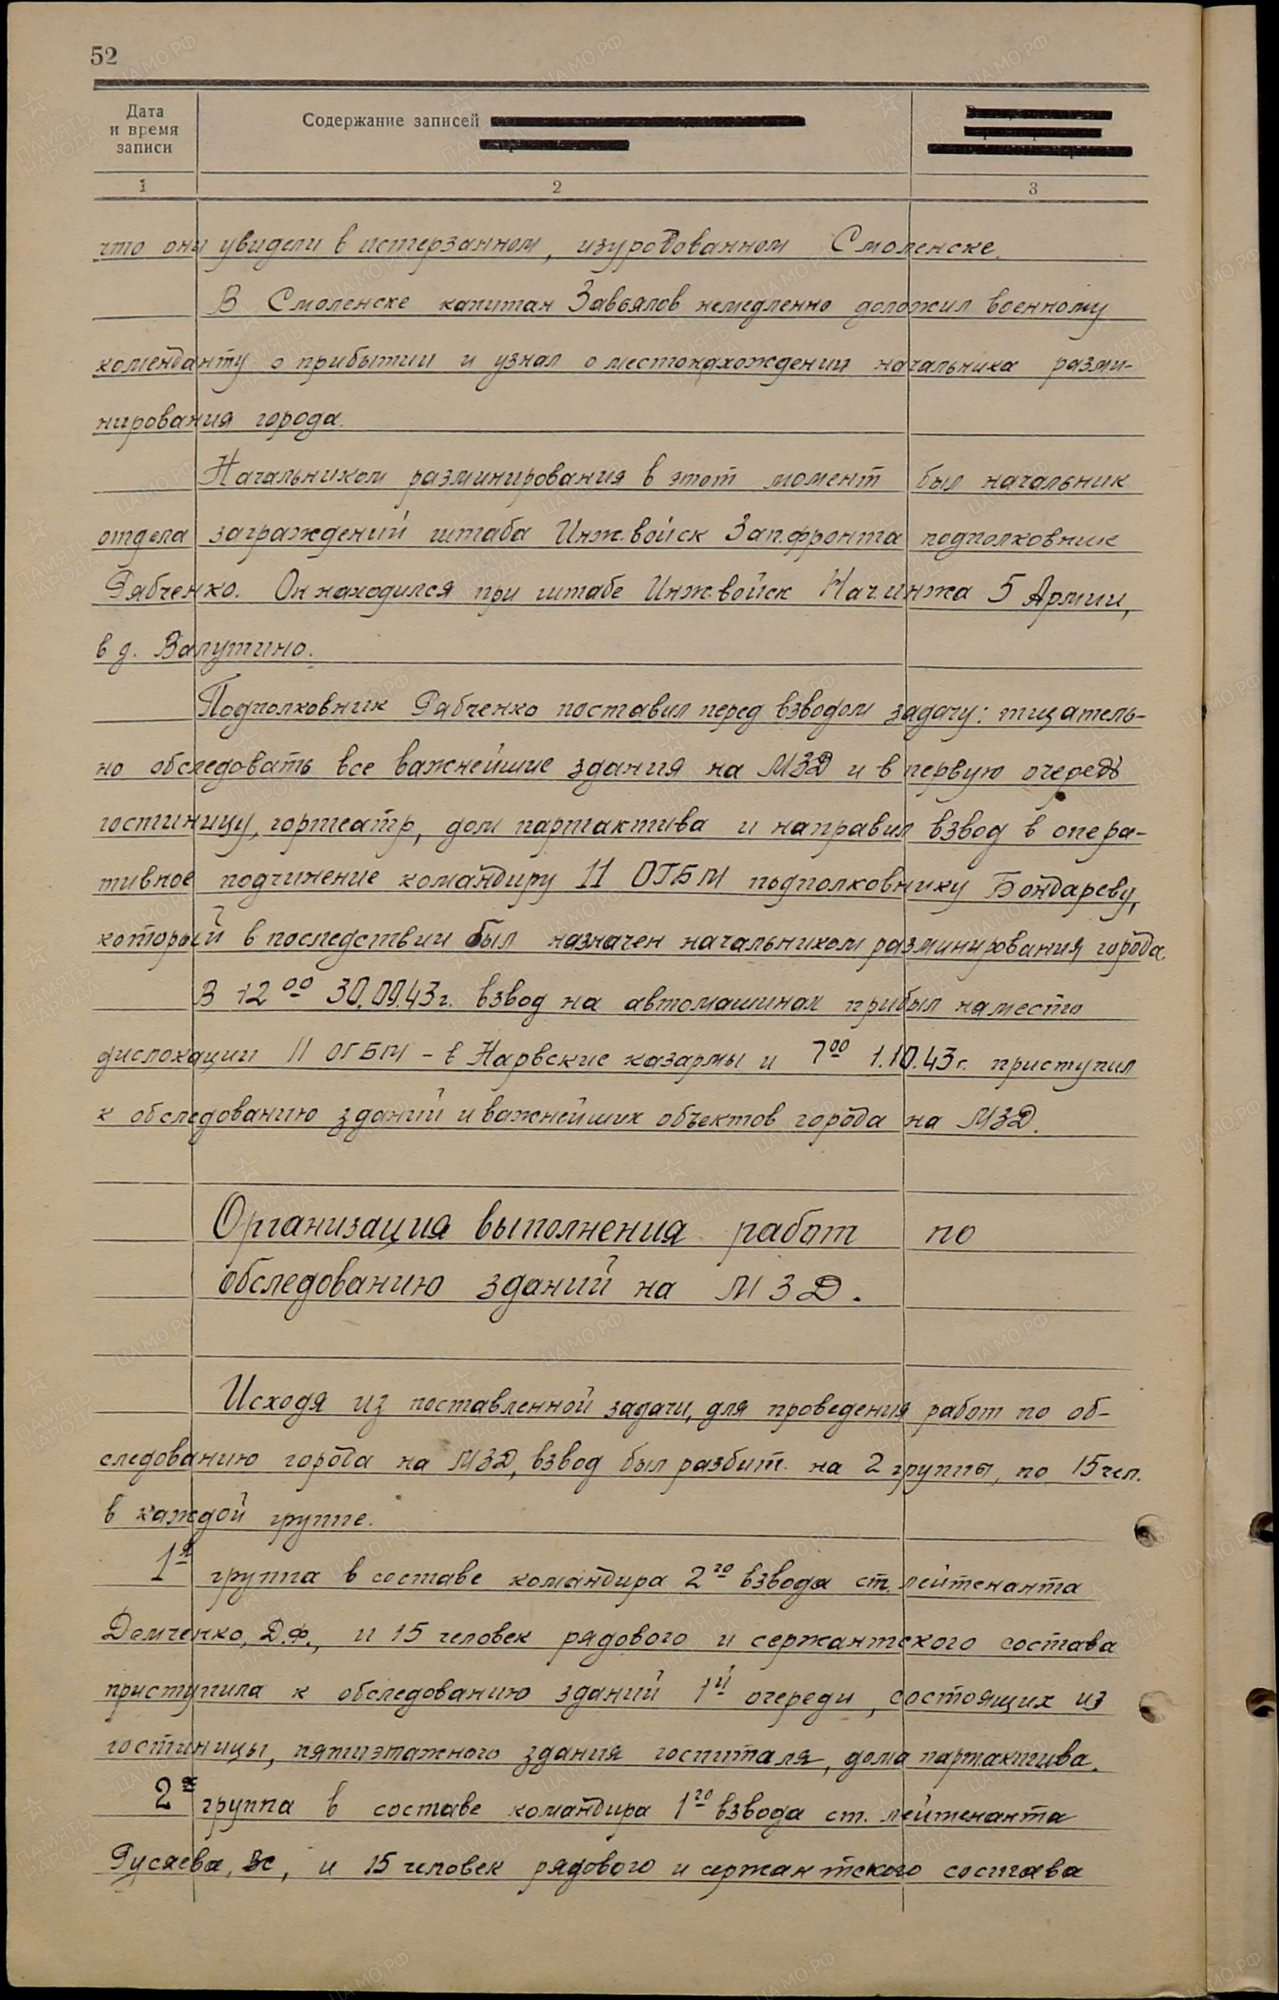 52
Дата
и время
записи
Содержание записей
1
2
3
что они увидели в истерзанном, изуродованном Смоленске.
В Смоленске капитан Завьялов немедленно доложил военному
коменданту о прибытии и узнал о местонахождении начальника разми-
нирования города.
Начальником разминирования в этот момент был начальник
отдела заграждений штаба Инж.войск Зап.фронта подполковник
Рябченко. Он находился при штабе Инж.войск Нач.инжа 5 Армии,
в д. Валутино.
Подполковник Рябченко поставил перед взводом задачу: тщатель-
но обследовать все важнейшие здания на МЗД и в первую очередь
гостиницу, гортеатр, дом партактива и направил взвод в опера-
тивное подчинение командиру 11 ОГБМ подполковнику Бондареву,
который в последствии был назначен начальником разминирования города.
В 12 00 30.09.43г. взвод на автомашинах прибыл на место
дислокации 11 ОГБМ - в Нарвские казармы и 7 00 1.10.43г. приступил
к обследованию зданий и важнейших объектов города на МЗД.
Организация выполнения работ по
обследованию зданий на МЗД.
Исходя из поставленной задачи, для проведения работ по об-
следованию города на МЗД, взвод был разбит на 2 группы, по 15 чел.
в каждой группе.
1я группа в составе командира 2го взвода ст. лейтенанта
Демченко, Д.Ф., и 15 человек рядового и сержантского состава
приступила к обследованию зданий 1й очереди, состоящих из
гостиницы, пятиэтажного здания госпиталя, дома партактива.
2я группа в составе командира 1го взвода ст. лейтенанта
Гусяева, и 15 человек рядового и сержантского состава